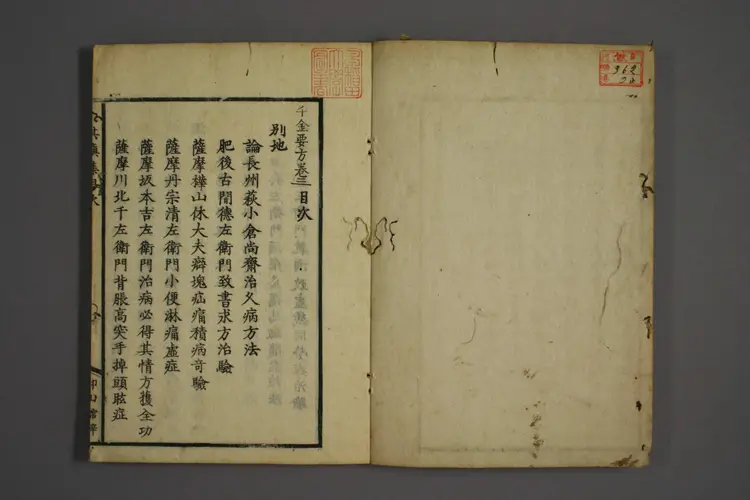 千金要方卷三目次
別地
論長州萩小倉尚齋治久病方法
肥後古閒德左衛門致書求方治驗
薩摩樺山休大夫癖塊疝痛積病奇驗
薩摩丹宗清左衛門小便淋痛虛症
薩摩坂本吉左衛門治病必得其情方獲全功
薩摩川北千左衛門背脹高突手掉頭眩症